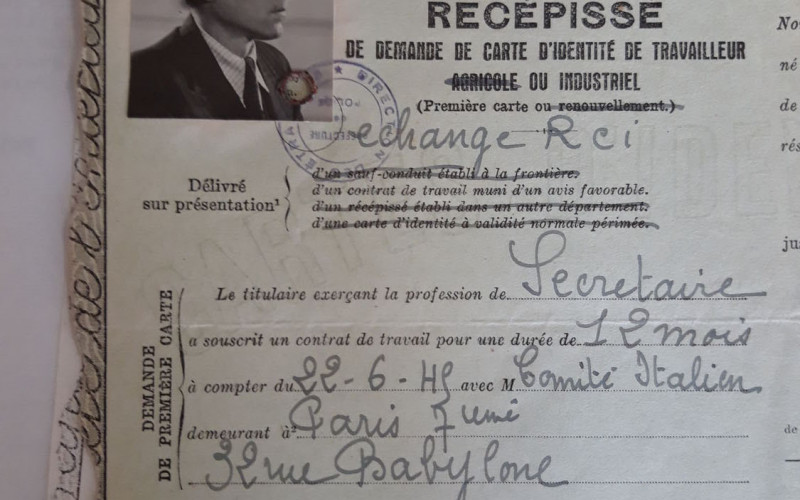 RÉCÉPISSÉ
DE DEMANDE DE CARTE D'IDENTITÉ DE TRAVAILLEUR
AGRICOLE OU INDUSTRIEL
(Première carte ou renouvellement.)
echange Rci
Délivré
sur présentation¹
d'un sauf-conduit établi à la frontière.
d'un contrat de travail muni d'un avis favorable.
d'un récépissé établi dans un autre département.
d'une carte d'identité à validité normale périmée.
DEMANDE
DE PREMIÈRE CARTE
Le titulaire exerçant la profession de Secretaire
a souscrit un contrat de travail pour une durée de 12 mois
à compter du 22-6-45 avec M Comité Italien
demeurant à² Paris 7 umê
32 rue Babylone
No
né
de
rés
jus
de